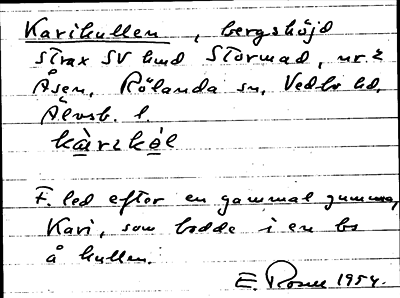 Karikullen, bergshöjd
strax SV hmd Stormad, nr. 2
Åsen, Rölanda sn, Vedbo hd,
Älvsb. l
kàrikól
F. led efter en gammal gumma,
Kari, som bodde i en bs
å kullen.
E. Rosen 1954.